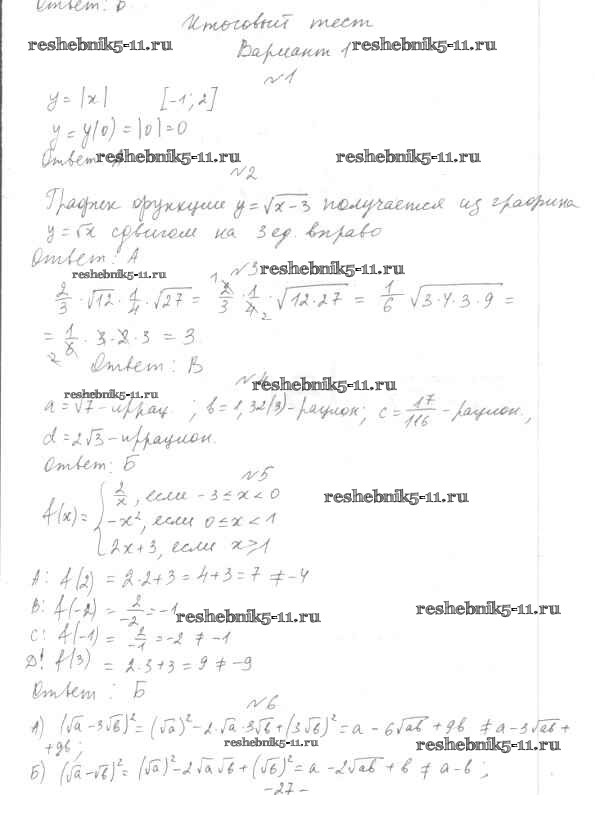 Ответ: Б
Итоговый тест
reshebnik5-11.ru Вариант 1 reshebnik5-11.ru
№1
y = |x| [-1; 2]
y = y(0) = |0| = 0
Ответ: reshebnik5-11.ru reshebnik5-11.ru
№2
График функции y = √x-3 получается из графика
y = √x сдвигом на 3 ед. вправо
Ответ: А
reshebnik5-11.ru №3 reshebnik5-11.ru
2/3 · √12 · 1/4 · √27 = 2/3 · 1/4 · √12·27 = 1/6 √3·4·3·9 =
= 1/6 · 3 · 2 · 3 = 3
Ответ: В
№4 reshebnik5-11.ru
reshebnik5-11.ru
a = √7 - иррац. ; b = 1,32(3) - рацион; c = 17/116 - рацион.,
d = 2√3 - иррацион.
Ответ: Б
№5
f(x) = { 2/x, если -3 ≤ x < 0 reshebnik5-11.ru
-x², если 0 ≤ x < 1
2x+3, если x ≥ 1
А: f(2) = 2·2+3 = 4+3 = 7 ≠ -4
В: f(-2) = 2/-2 = -1 reshebnik5-11.ru reshebnik5-11.ru
С: f(-1) = 2/-1 = -2 ≠ -1
Д: f(3) = 2·3+3 = 9 ≠ -9
Ответ: Б
№6
А) (√a - 3√b)² = (√a)² - 2·√a·3√b + (3√b)² = a - 6√ab + 9b ≠ a - 3√ab +
+ 9b; reshebnik5-11.ru reshebnik5-11.ru
Б) (√a - √b)² = (√a)² - 2√a√b + (√b)² = a - 2√ab + b ≠ a - b;
-27-